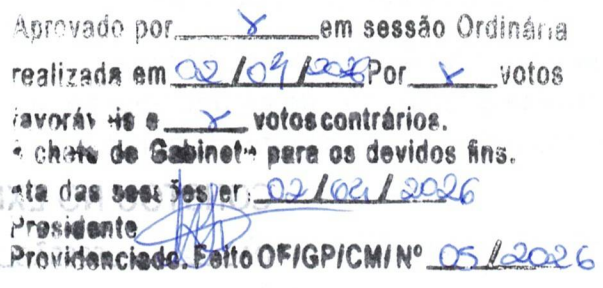 Aprovado por x em sessão Ordinária
realizada em 02/04/2026 Por x votos
favoráveis e x votos contrários.
chefe de Gabinete para os devidos fins.
das sessões em 02/04/2026
Presidente
Providenciado. Feito OF/GP/CMI Nº 05/2026